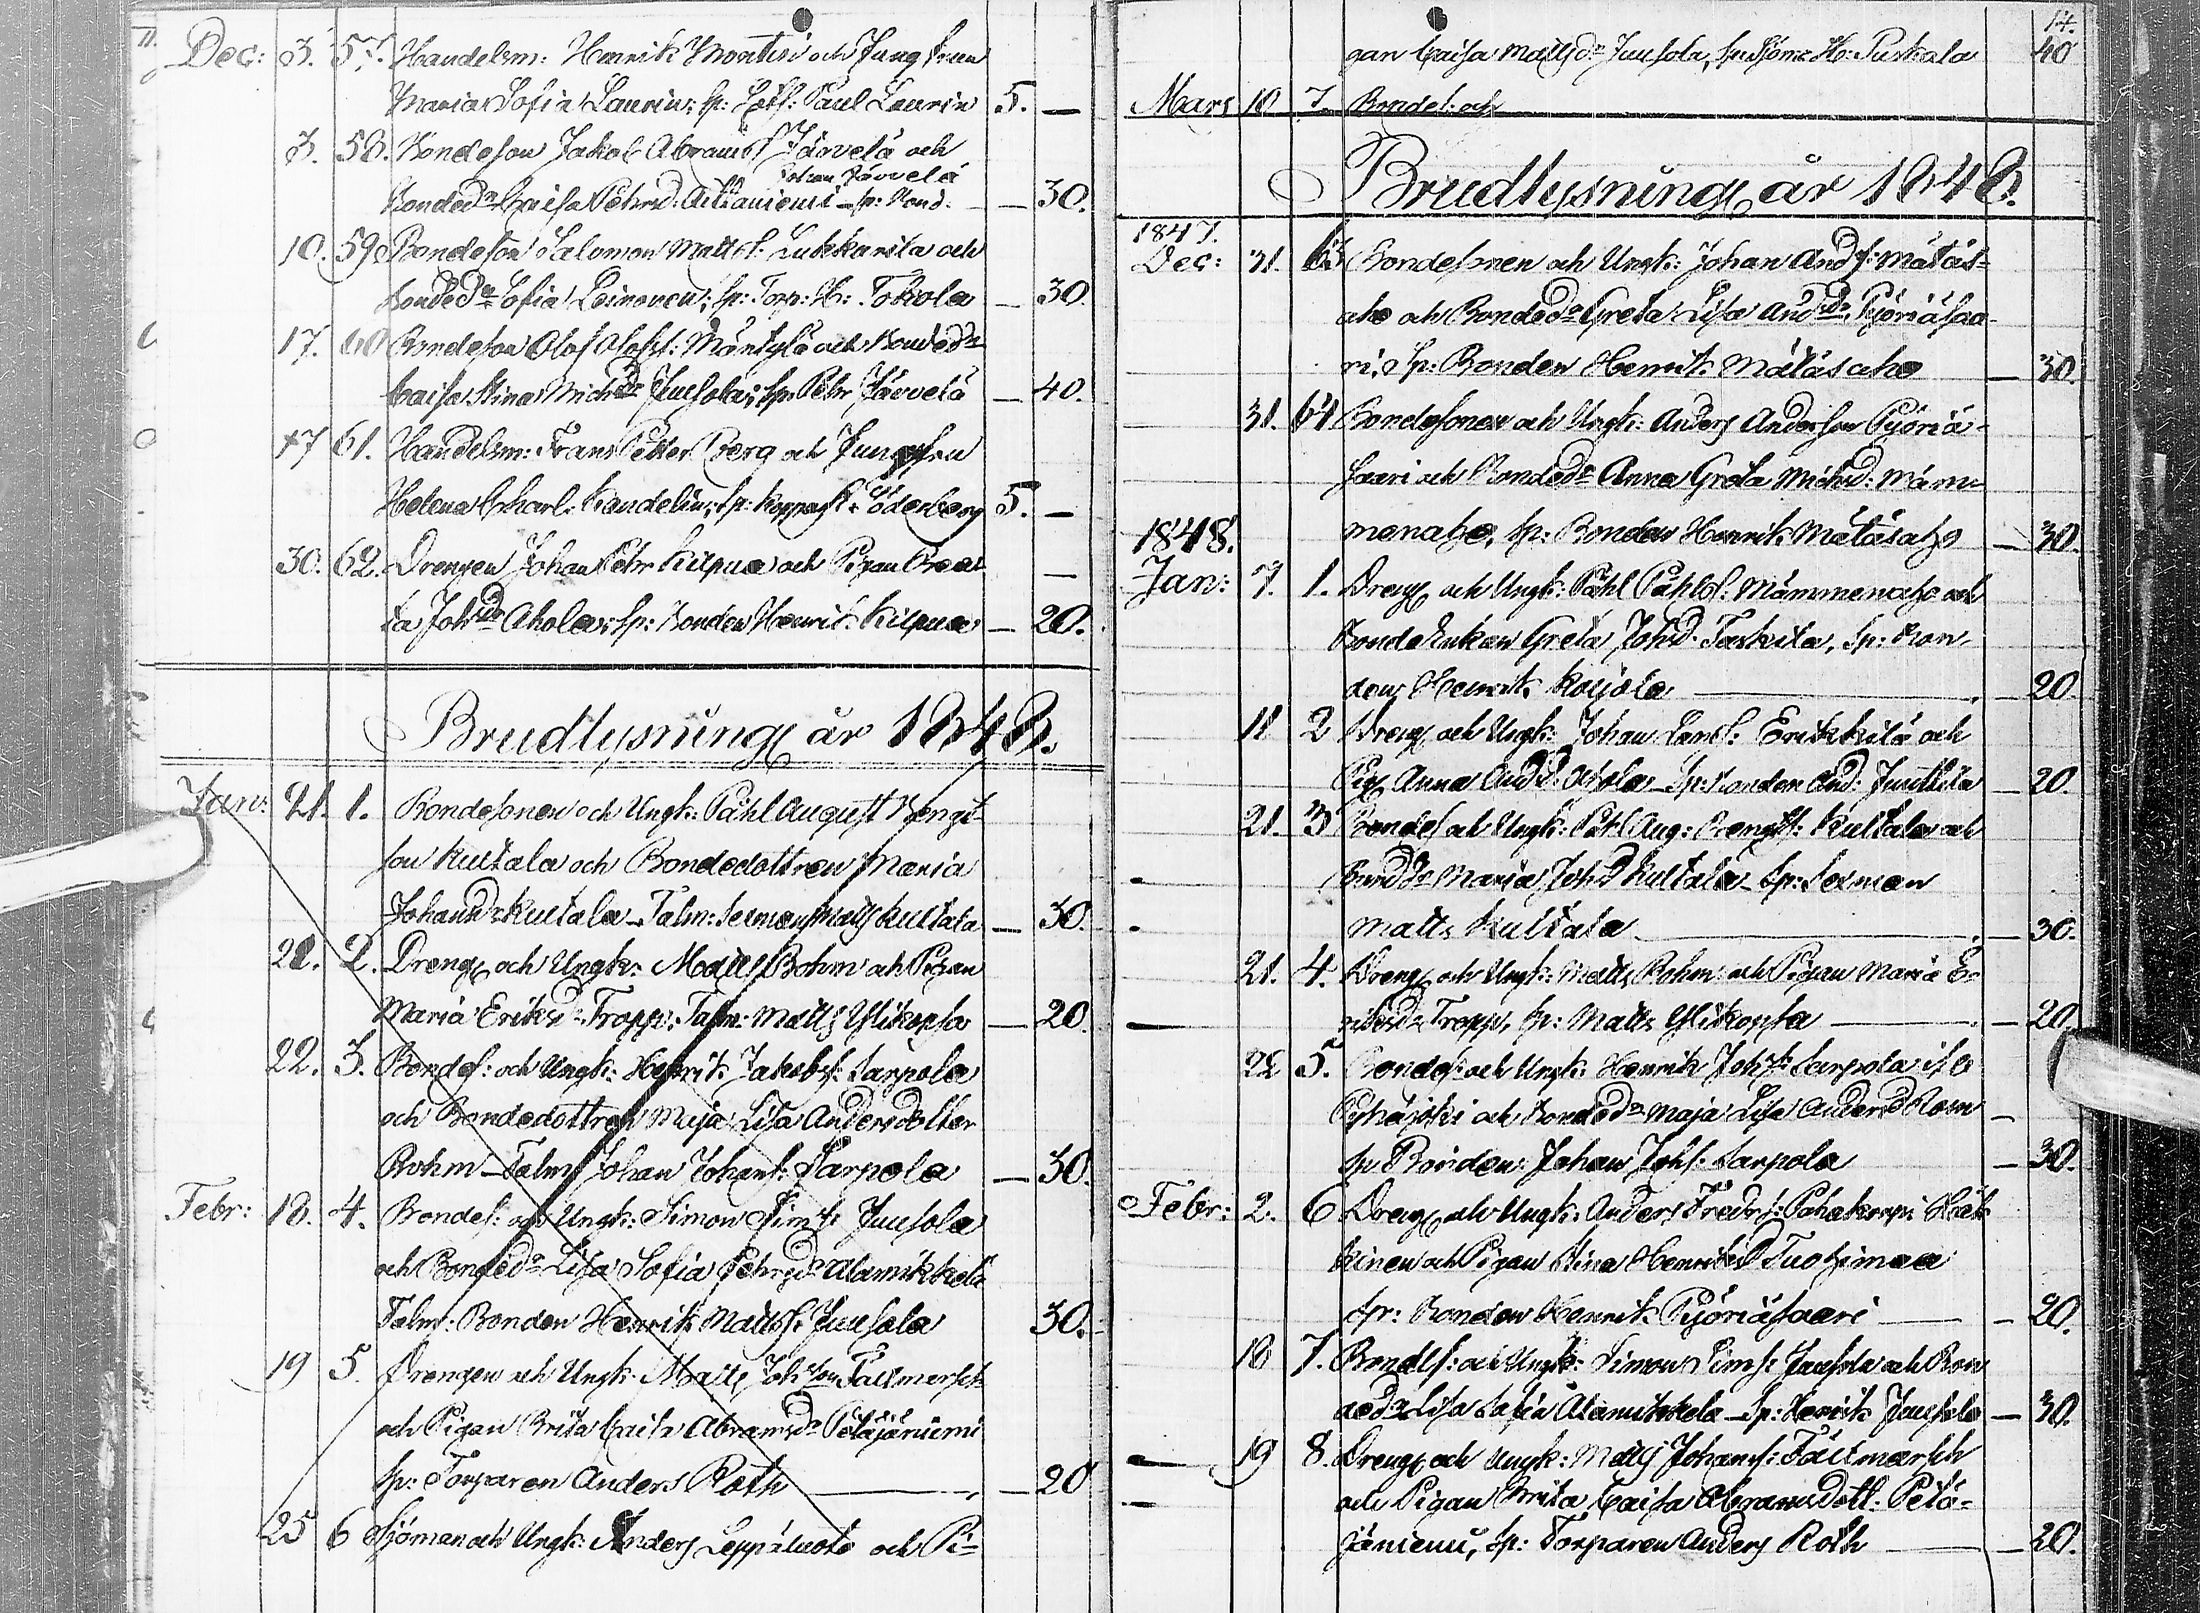 11.
Dec: 3. 57. Handelsm: Henrik Montin och Jungfrun
Maria Sofia Laurin; sp: Paul Laurin 5. —
3. 58. Bondeson Jakob Abramsf Järvelä och
Johan Järvelä
Bonded:r Caisa Pehrsd: Aittaniemi — sp: Bond. — 30.
10. 59. Bondeson Salomon Matts f: Lukkarila och
bonded:r Sofia Leinonen; sp: Torp: H: Tokola — 30.
17. 60. Bondeson Olof Olofsf: Mäntylä och Bonded:r
Caisa Stina Mich:dr Juusola; sp. Pehr Järvelä — 40.
17 61. Handelsm: Frans Petter Berg och Jungfru
Helena Charl. Kandelin; sp: Söderberg 5. —
30. 62. Drengen Johan Pehr Kilpua och Pigan Brei —
ta Joh:dr Ahola; sp: Bonden Henrik Kilpua — 20.
Brudlysning år 1848.
Jan: 21. 1. Bondesonen och Ungk: Påhl August Bengt-
son Kultala och Bondedottren Maria
Johansd:r Kultala — Talm: Sexman Matts Kultala — 30.
21. 2. Dreng och Ungk: Matts Bohm och Pigan
Maria Eriksd:r Tropp; Talm: Matts Ylikopsa — 20.
22. 3. Bondes: och Ungk: Henrik Jakobsf: Sarpola
och Bondedottren Maja Lisa Andersdotter
Bohm — Talm: Johan Johansf: Sarpola — 30.
Febr: 18. 4. Bondes: och Ungk: Simon Simsf: Juusola
och Bonded:r Lisa Sofia Pehrsd:r Alamikkelä
Talm: Bonden Henrik Mattsf: Juusola 30.
19 5. Drengen och Ungk: Matts Johsson Taitmersch
och Pigan Brita Caisa Abramsd:r Petäjäniemi
sp: Torparen Anders Roth — 20
25 6 Sjöman och Ungk: Anders Leppäluoto och Pi-
14.
gan Caisa Mattsd:r Juusola, sp: Sjöm: H: Puskala 40
Mars 10 7. Bondes: och
Brudlysning år 1848.
1847.
Dec: 31. 63 Bondesonen och Ungk: Johan Andsf: Mätäs-
aho och Bonded:r Greta Lisa Ands:dr Pyöriäsaa-
ri, sp: Bonden Henrik Mätäsaho — 30.
31. 64 Bondesonen och Ungk: Anders Anderson Pyöriä-
saari och Bonded:r Anna Greta Michsd: Mäm-
menaho, sp: Bonden Henrik Mätäsaho — 30.
1848.
Jan: 7. 1. Dreng och Ungk: Påhl Påhlsf: Mämmenaho och
BondeEnkan Greta Johsd. Taskila, sp: Bon
den Henrik Korjola — 20.
11 2 Dreng och Ungk: Johan Carlsf: Erikkilä och
Pig. Anna Andsd: Ahola — sp: Bonden And: Junttila — 20.
21. 3 Bondes och Ungk: Påhl Aug: Bengtsf: Kultala och
Bond:dr Maria Johsd Kultala — sp: Sexman
Matts Kultala — 30.
21. 4. Dreng och Ungk: Matts Bohm och Pigan Maria E-
riksd:r Tropp, sp: Matts Ylikopsa — 20.
22 5. Bondes: och Ungk: Henrik Johsf: Sarpola
Pyhäjoki och Bonded:r Maja Lisa Andersd Bohm —
sp Bonden: Johan Johsf: Sarpola — 30.
Febr: 2. 6 Dreng och Ungk: Anders Fredrsf: Pahakoski
kinen och Pigan Stina Henriksd Tuohimaa
sp: Bonden Henrik Pyöriäsaari — 20.
18 7. Bondes: och Ungk: Simon Simsf: Juusola och Bon
ded:r Lisa Sofia Alamikkelä — sp: Henrik Juusola — 30.
19 8. Dreng och Ungk: Matts Johansf: Taitmersch
och Pigan Brita Caisa Abramsdott: Petä-
jäniemi, sp: Torparen Anders Roth — 20.